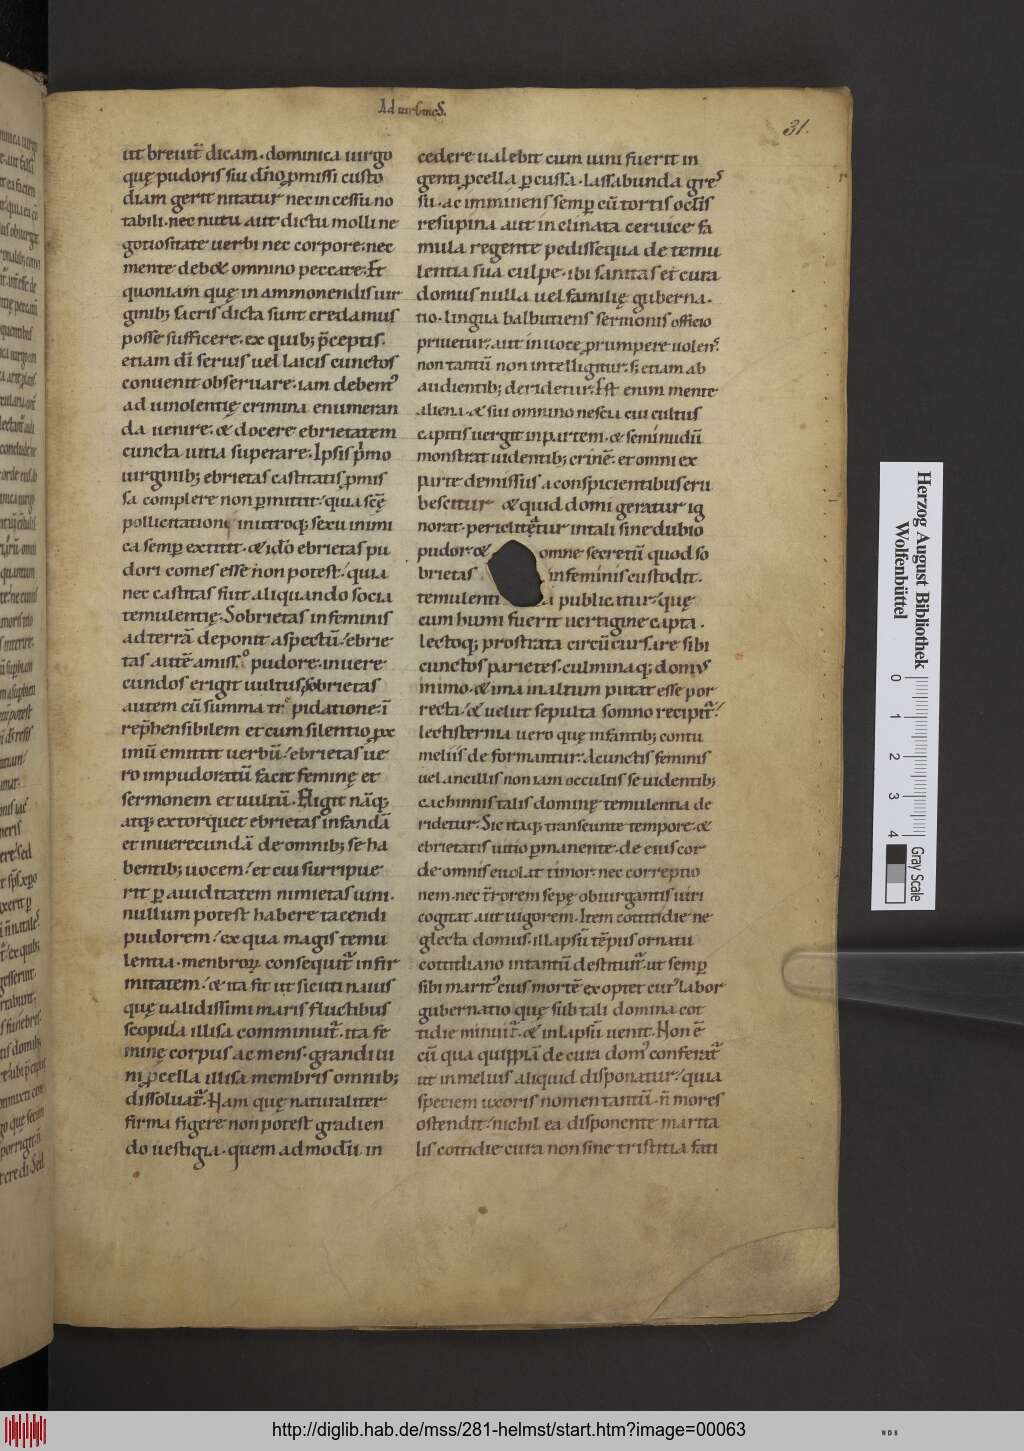 Ad uirgines.
31.
ut breuiť dicam. dominica uirgo
quę pudoris sui dn̄o ꝓmissi custo
diam gerit nitatur nec incessu no
tabili. nec nutu aut dictu molli ne
gotiositate uerbi nec corpore. nec
mente debeat omnino peccare. Et
quoniam quę in ammonendis uir
ginib; sacris dicta sunt credamus
posse sufficere. ex quib; p̄ceptis.
etiam dī seruis uel laicis cunctos
conuenit obseruare. iam debemꝰ
ad uinolentię crimina enumeran
da uenire. & docere ebrietatem
cuncta uitia superare. Ipsis pͥmo
uirginib; ebrietas castitatis ꝓmis
sa complere non ꝑmittit. quia scę̄
pollicitationi in utroq; sexu inimi
ca semꝑ extitit. & idō ebrietas pu
dori comes esse non potest. quia
nec castitas fiut aliquando socia
temulentię. Sobrietas in feminis
ad terrā deponit aspectū. ebrie
tas autē amisso pudore. inuere
cundos erigit uultus. sobrietas
autem cū summa trepidatione. ī
rep̄hensibilem et cum silentio ꝓx
imū emittit uerbū. ebrietas ue
ro impudoratū facit feminę et
sermonem et uultū. Eligit nāq;
atq; extorquet ebrietas infandā
et inuerecundā de omnib; se ha
bentib; uocem. et cui surripue
rit ꝑ auiditatem nimietas uini.
nullum potest habere tacendi
pudorem. ex qua magis temu
lentia. menbroꝝ consequiť infir
mitatem. & ita fit ut sicuti nauis
quę ualidissimi maris fluctibus
scopula illisa comminuiť. ita fe
minę corpus ac mens. grandi ui
ni ꝓcella illisa membris omnib;
dissoluať. Nam quę naturaliter
firma figere non potest gradien
do uestigia. quem admodū in
cedere ualebit cum uini fuerit in
genti ꝓcella ꝑcussa. lassabunda gres
su. ac imminens semꝑ cū tortis oclis
resupina aut inclinata ceruice fa
mula regente pedissequa de temu
lentia sua culpe. ibi sanitas et cura
domus nulla uel familię guberna.
tio. lingua balbutiens sermonis officio
priuetur. aut in uoce ꝓrumpere uolens.
non tantū non intelligitur. sꝫ etiam ab
audientib; deridetur. Est enim mente
aliena & sui omnino nescia cui cultus
capitis uergit in partem. & seminudū
monstrat uidentib; crinē. et omni ex
parte demissus a conspicientibus eru
bescitur & quid domi geratur ig
norat. periclitętur in tali sine dubio
pudor. & omne secretū quod so
brietas in feminis custodit.
temulenti a publicatur. quę
cum humi fuerit uertigine capta.
lectoq; prostrata circūcursare sibi
cunctos parietes. culminaq; domꝰ
inimo. & ima in altum putat esse por
recta. & uelut sepulta somno recipiť.
lectisternia uero quę infantib; contu
meliis deformantur. A cunctis feminis
uel ancillis non iam occultis se uidentib;
cachinnis talis dominę temulentia de
ridetur. Sic itaq; transeunte tempore. &
ebrietatis uitio ꝑmanente. de eius cor
de omnis euolat timor. nec correptio
nem. nec t̄rorem sepę obiurgantis uiri
cogitat aut uigorem. Item cottidie ne
glecta domus. illapsū tēpus ornatu
cottidiano in tantū destituiť. ut semꝑ
sibi maritꝰ eius mortē exoptet cuiꝰ labor
gubernatio quę sub tali domina cot
tidie minuiť. & in lapsū uenit. Non ē
cū qua quippiā de cura domꝰ conferať
ut in melius aliquid disponatur. quia
speciem uxoris nomen tantū. n̄ mores
ostendit. nichil ea disponente marita
lis cottidie cura non sine tristitia fati
Herzog August Bibliothek
Wolfenbüttel
0 1 2 3 4
Gray Scale
http://diglib.hab.de/mss/281-helmst/start.htm?image=00063